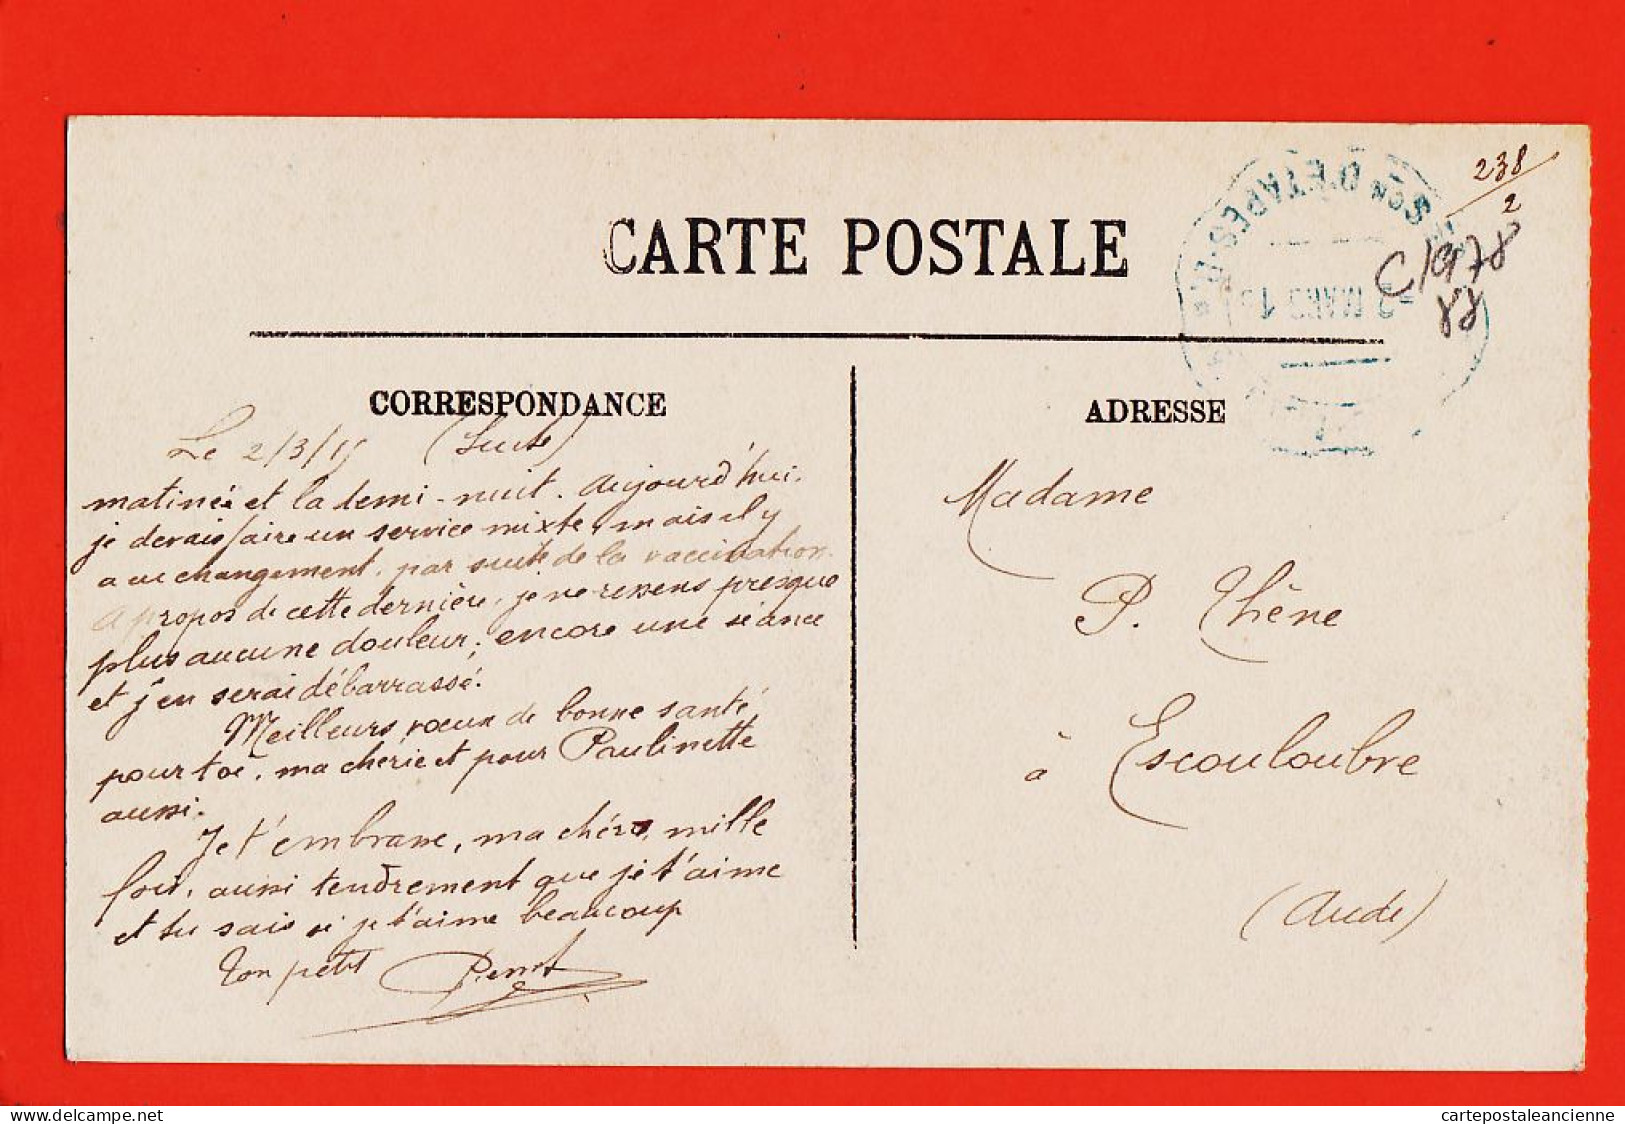 238/2
C/1978
SSon D'ETAPES
MARS 1
CARTE POSTALE
CORRESPONDANCE
ADRESSE
Le 2/3/15 (Suite)
matinée et la demi-nuit. Aujourd'hui.
je devais faire un service mixte, mais il y
a eu changement, par suite de la vaccination.
A propos de cette dernière, je ne ressens presque
plus aucune douleur; encore une séance
et j'en serai débarrassé.
Meilleurs vœux de bonne santé
pour toi, ma chérie et pour Paulinette
aussi.
Je t'embrasse, ma chère, mille
fois, aussi tendrement que je t'aime
et tu sais si je t'aime beaucoup
Ton petit
Madame
P. Thène
à Escouloubre
(Aude)
delcampe.net
cartepostaleancienne